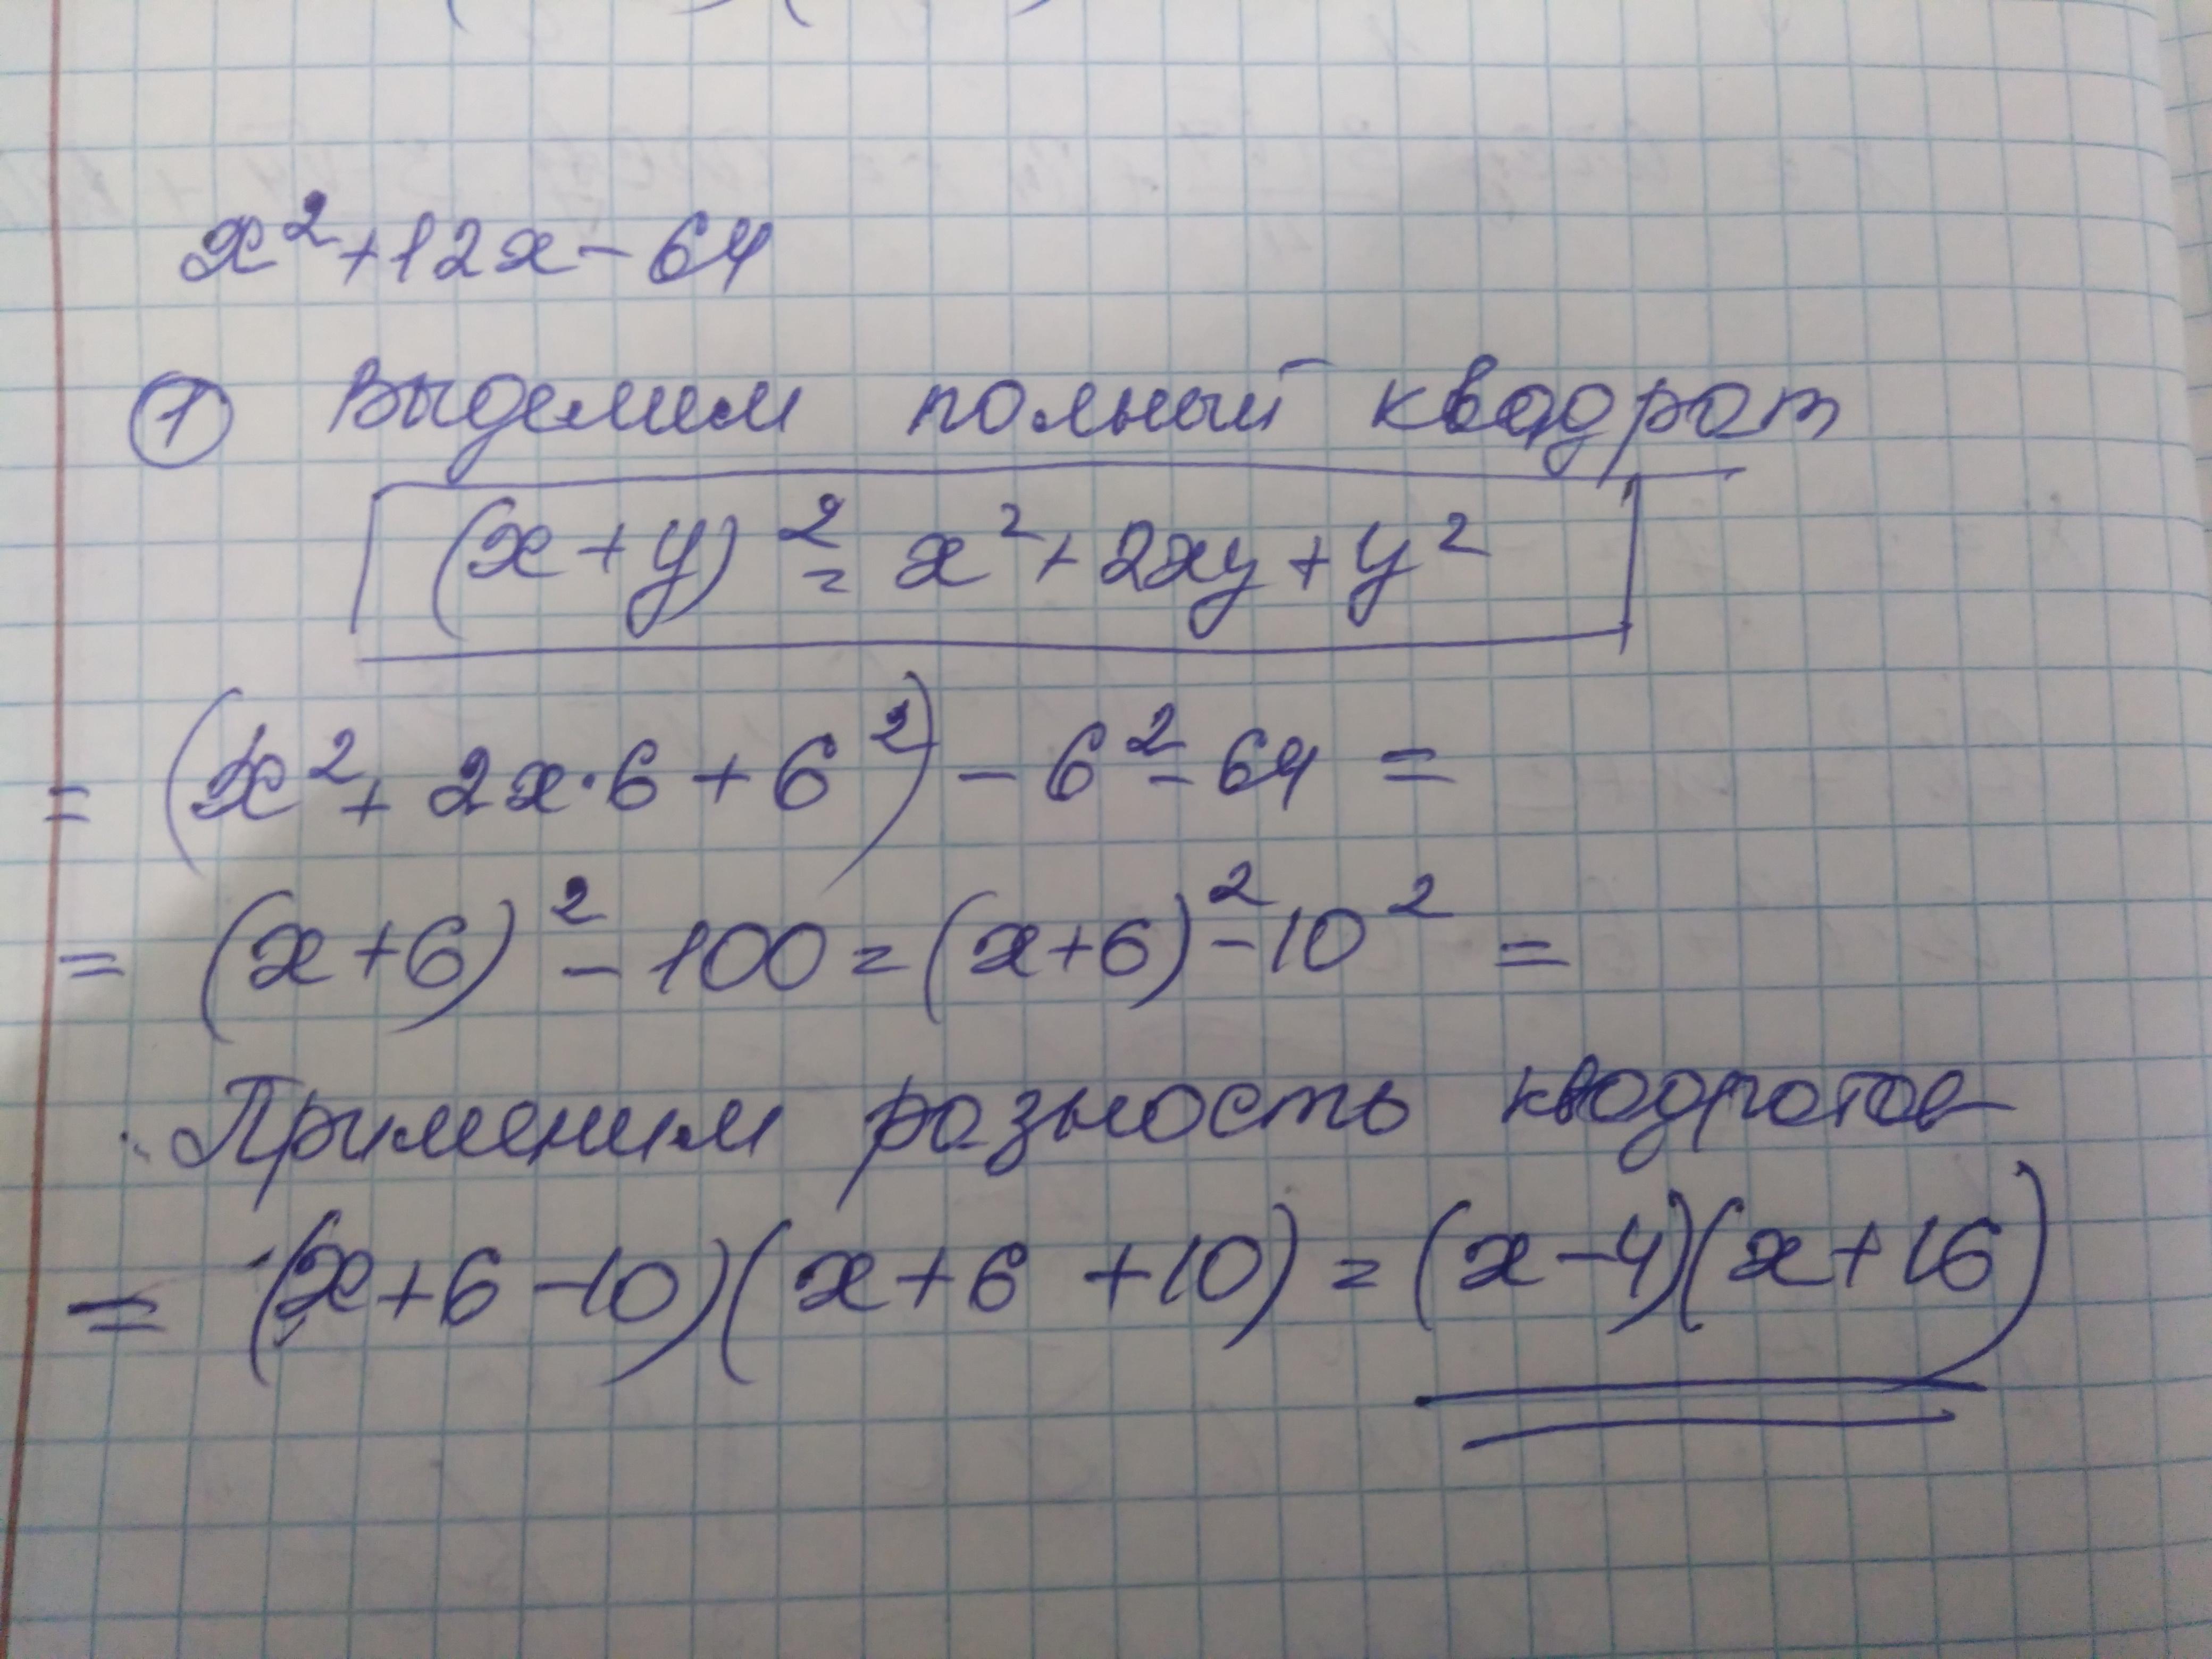 x²+12x-64
① Выделим полный квадрат
(x+y)²=x²+2xy+y²
=(x²+2x·6+6²)-6²-64=
=(x+6)²-100=(x+6)²-10²=
Применим разность квадратов
=(x+6-10)(x+6+10)=(x-4)(x+16)